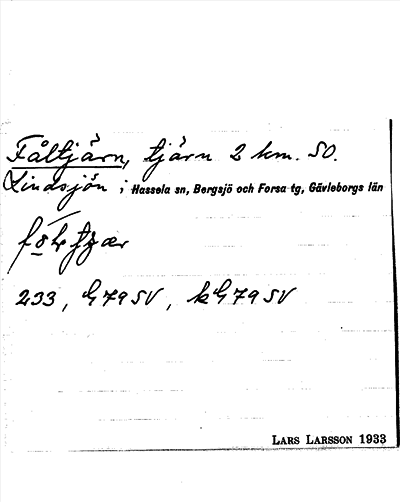 Fåltjärn, tjärn 2 km. SO.
Lindsjön ; Hassela sn, Bergsjö och Forsa tg, Gävleborgs län
233, G79SV, kG79SV
LARS LARSSON 1933